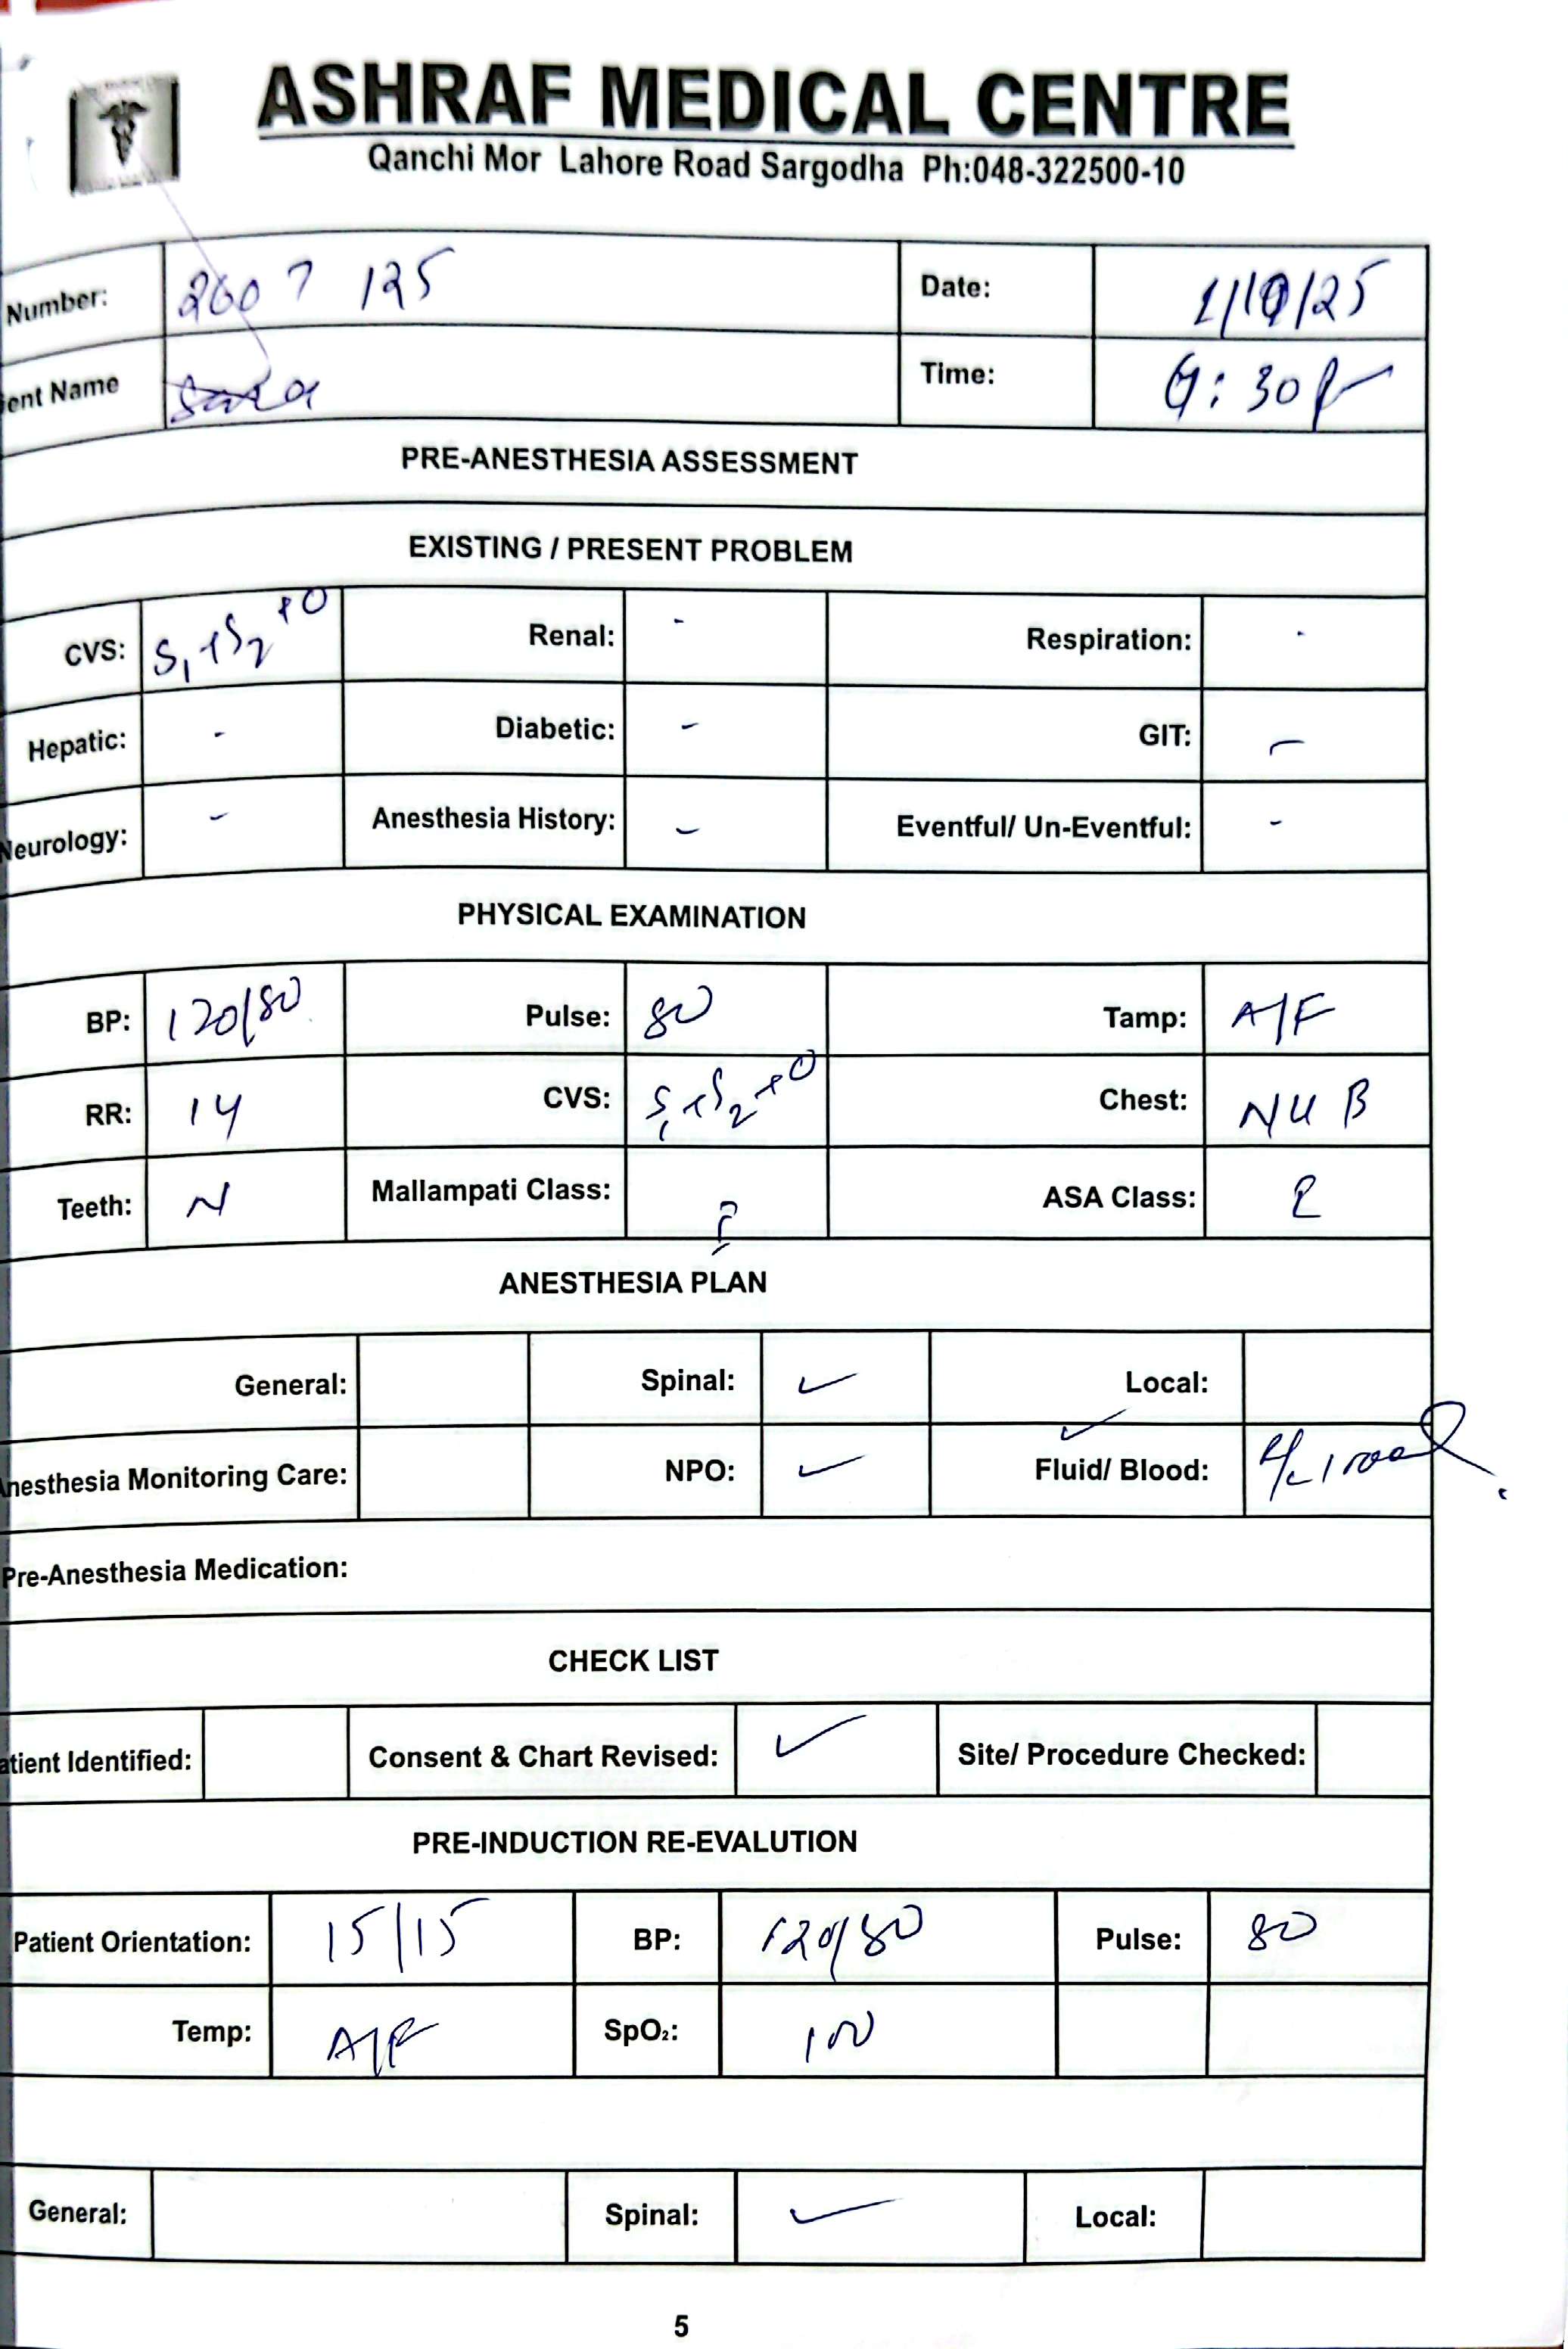 ASHRAF MEDICAL CENTRE
Qanchi Mor Lahore Road Sargodha Ph:048-322500-10
Number: 2007 125 Date: 1/10/25
ent Name Sara Time: :30
PRE-ANESTHESIA ASSESSMENT
EXISTING / PRESENT PROBLEM
CVS: S1+S2+0 Renal: - Respiration: -
Hepatic: - Diabetic: - GIT: -
Neurology: - Anesthesia History: - Eventful/ Un-Eventful: -
PHYSICAL EXAMINATION
BP: 120/80 Pulse: 80 Tamp: A/F
RR: 14 CVS: S1+S2+0 Chest: NUB
Teeth: N Mallampati Class: ASA Class: 2
ANESTHESIA PLAN
General: Spinal: ✓ Local:
Anesthesia Monitoring Care: NPO: ✓ Fluid/ Blood: ✓
Pre-Anesthesia Medication:
CHECK LIST
atient Identified: Consent & Chart Revised: ✓ Site/ Procedure Checked:
PRE-INDUCTION RE-EVALUTION
Patient Orientation: 15/15 BP: 120/80 Pulse: 80
Temp: A/F SpO₂: 100
General: Spinal: ✓ Local:
5